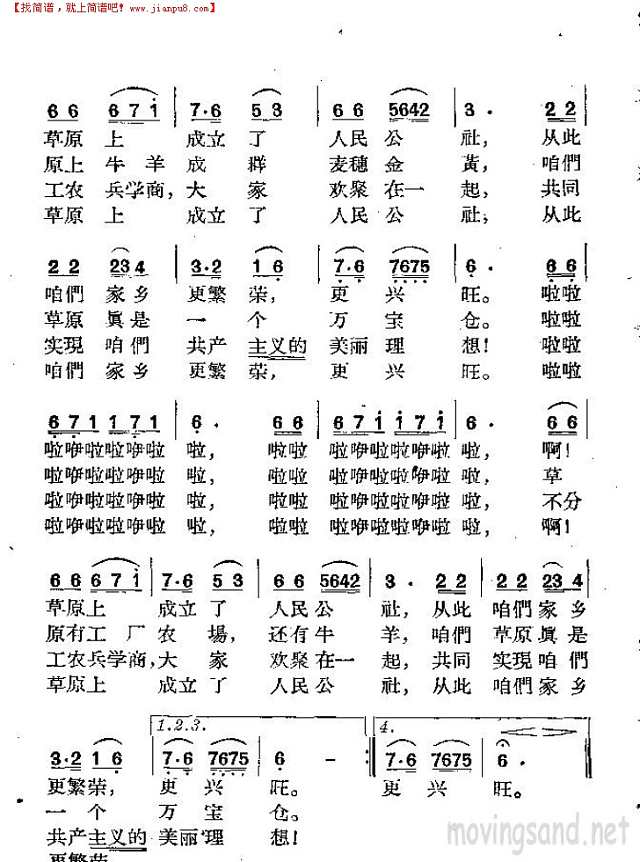 【找简谱，就上简谱吧! www.jianpu8.com】
6 6 6 7 1 7·6 5 3 6 6 5642 3· 2 2
草原上 成立了 人民公 社，从此
原上牛羊成群 麦穗金 黄，咱們
工农兵学商，大家 欢聚在一起，共同
草原上 成立了 人民公 社，从此
2 2 23 4 3·2 1 6 7·6 7675 6· 6 6
咱們家乡 更繁荣，更兴 旺。啦啦
草原眞是 一个 万宝 仓。啦啦
实現咱們 共产主义的美丽理 想！啦啦
咱們家乡 更繁荣，更兴 旺。啦啦
6 7 1 1 7 1 6· 6 6 6 7 1 1 7 1 6· 6 6
啦咿啦啦咿啦 啦，啦啦 啦咿啦啦咿啦 啦，啊！
啦咿啦啦咿啦 啦，啦啦 啦咿啦啦咿啦 啦，草
啦咿啦啦咿啦 啦，啦啦 啦咿啦啦咿啦 啦，不分
啦咿啦啦咿啦 啦，啦啦 啦咿啦啦咿啦 啦，啊！
6 6 6 7 1 7·6 5 3 6 6 5642 3· 2 2 2 2 23 4
草原上 成立了 人民公 社，从此 咱們家乡
原有工厂农場，还有牛 羊，咱們 草原眞是
工农兵学商，大家 欢聚在一起，共同 实現咱們
草原上 成立了 人民公 社，从此 咱們家乡
1.2.3. 4.
3·2 1 6 7·6 7675 6 - 7·6 7675 6·
更繁荣，更兴 旺。更兴 旺。
一个 万宝 仓。
共产主义的美丽理 想！
更繁荣
movingsand.net